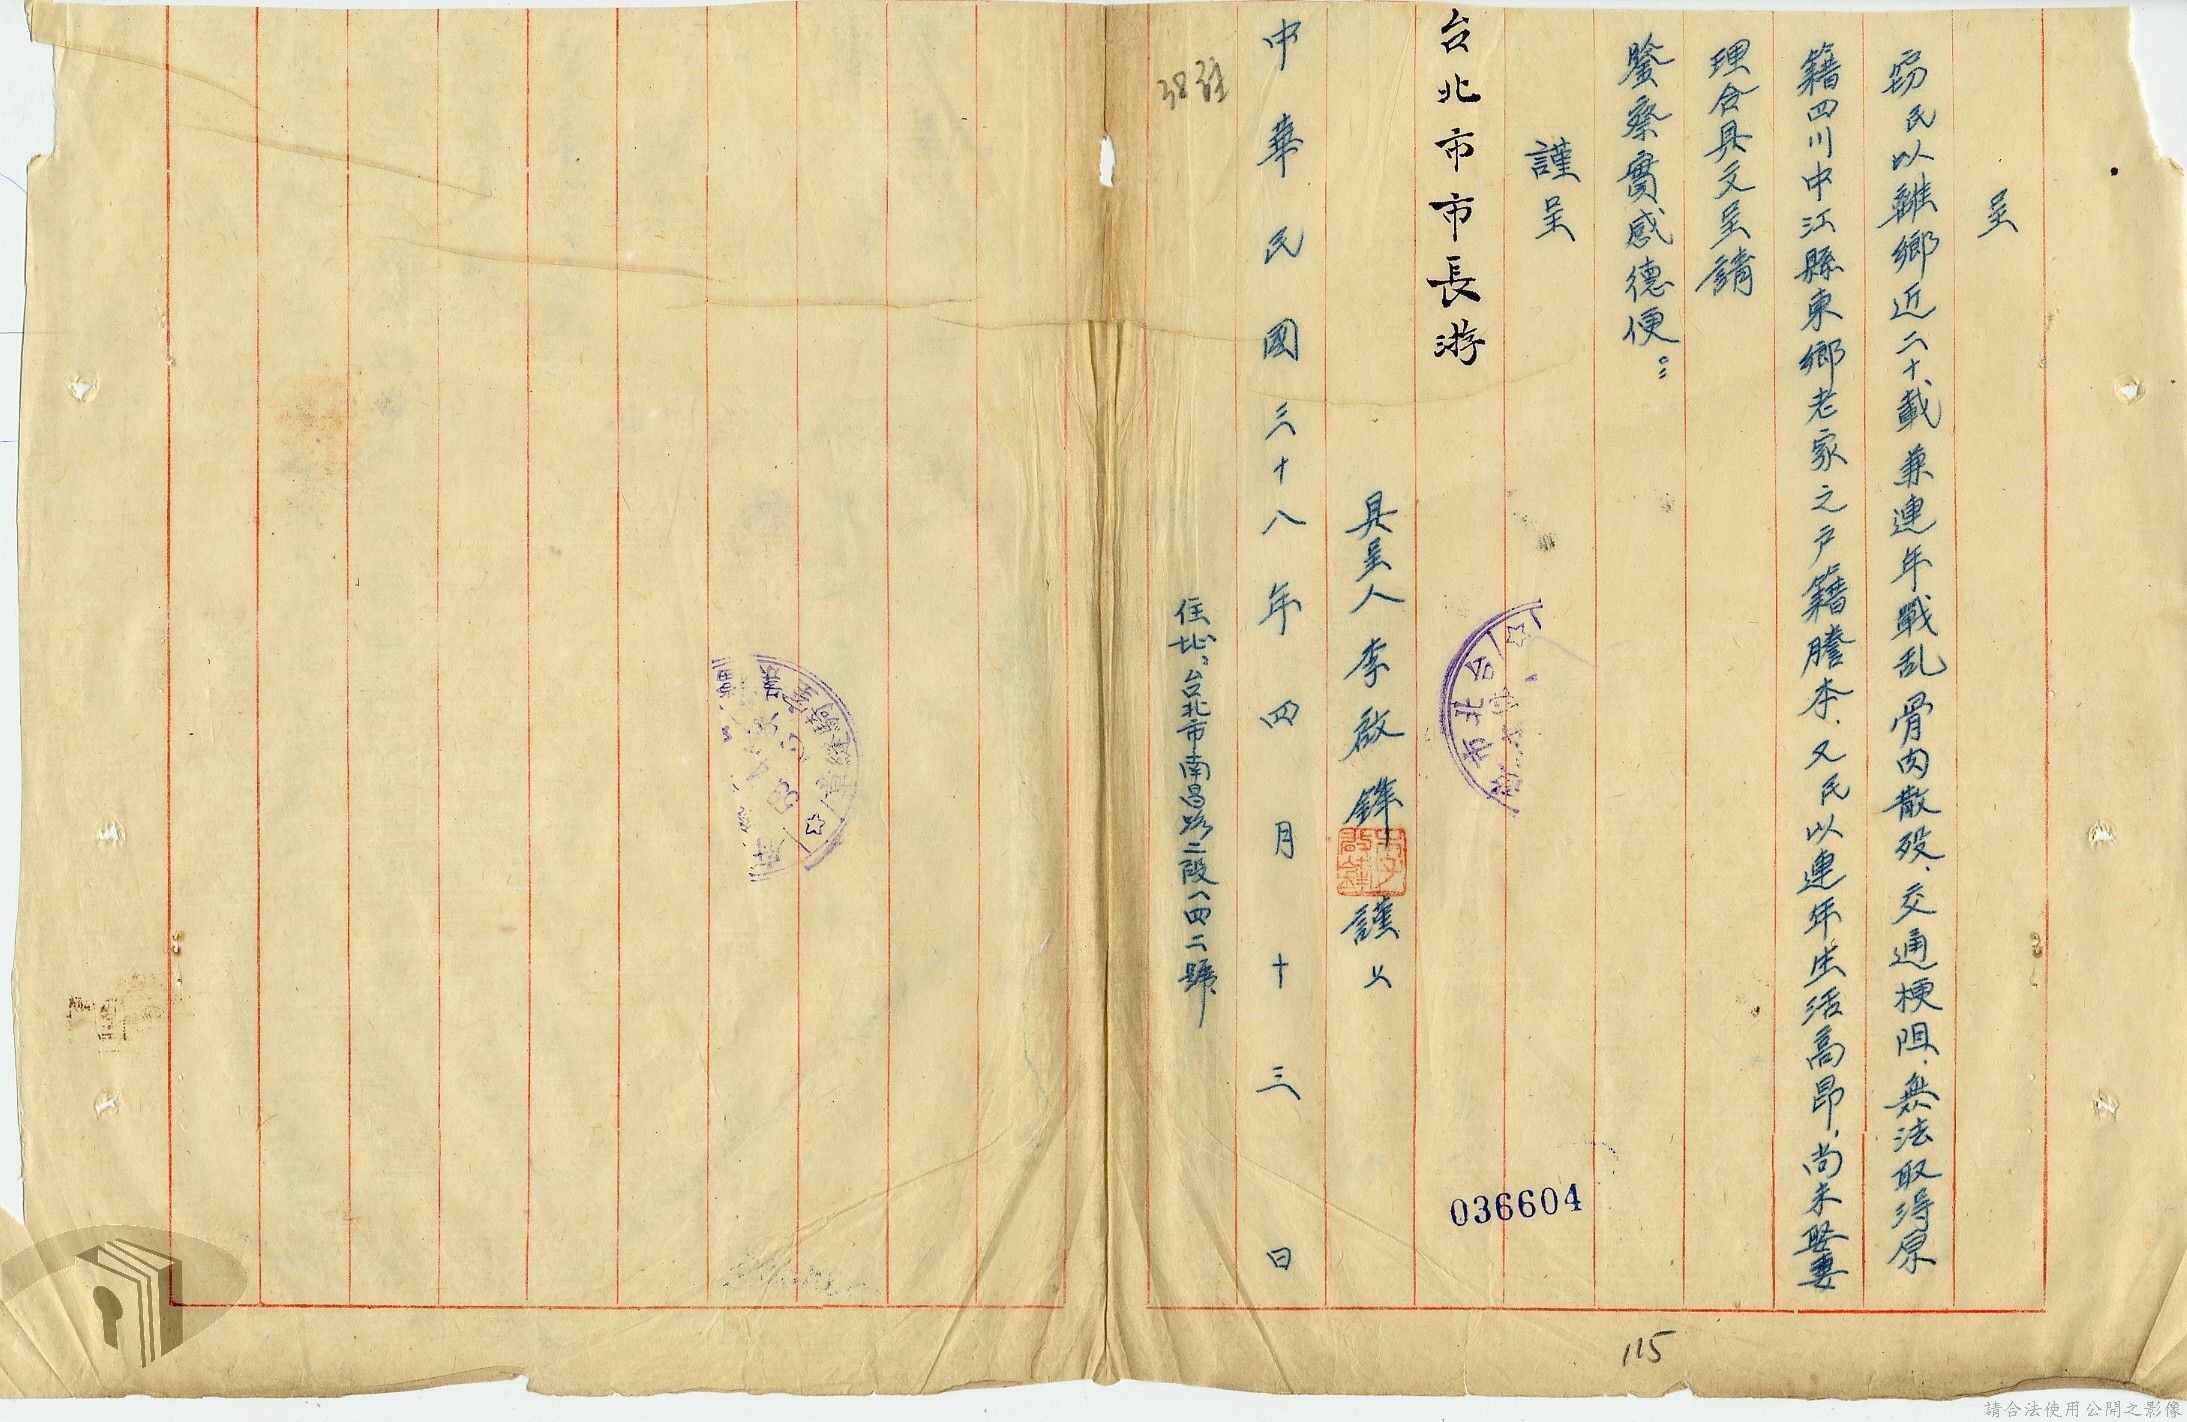 呈
窃民以離鄉近二十載兼連年戰乱骨肉散殁、交通梗阻、無法取得原
籍四川中江縣東鄉老家之戶籍謄本、又民以連年生活高昂、尚未娶妻
理合具文呈請
鑒察實感德便：
謹呈
台北市市長游
具呈人李啟鋒謹上
中華民國三十八年四月十三日
住址：台北市南昌路二段八四二號
台北市
036604
115
請合法使用公開之影像